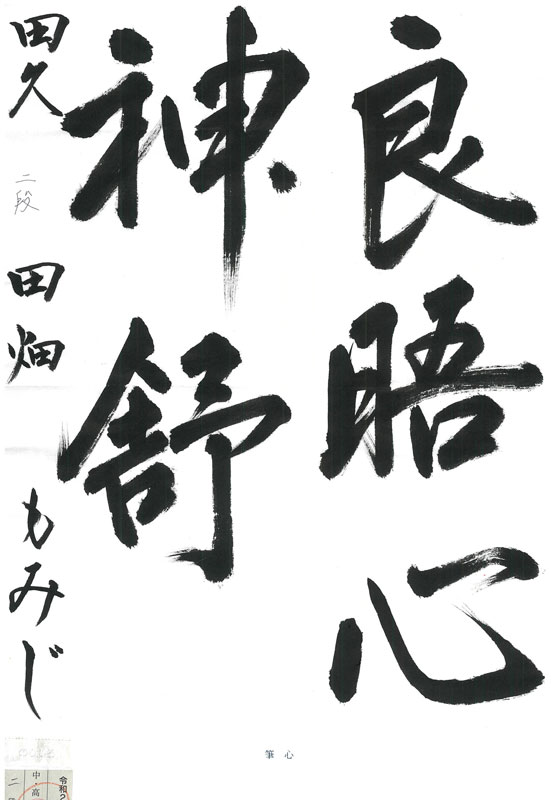 良晤心
神舒
田久 二段 田畑 もみじ
心筆
令和2
中・高
二